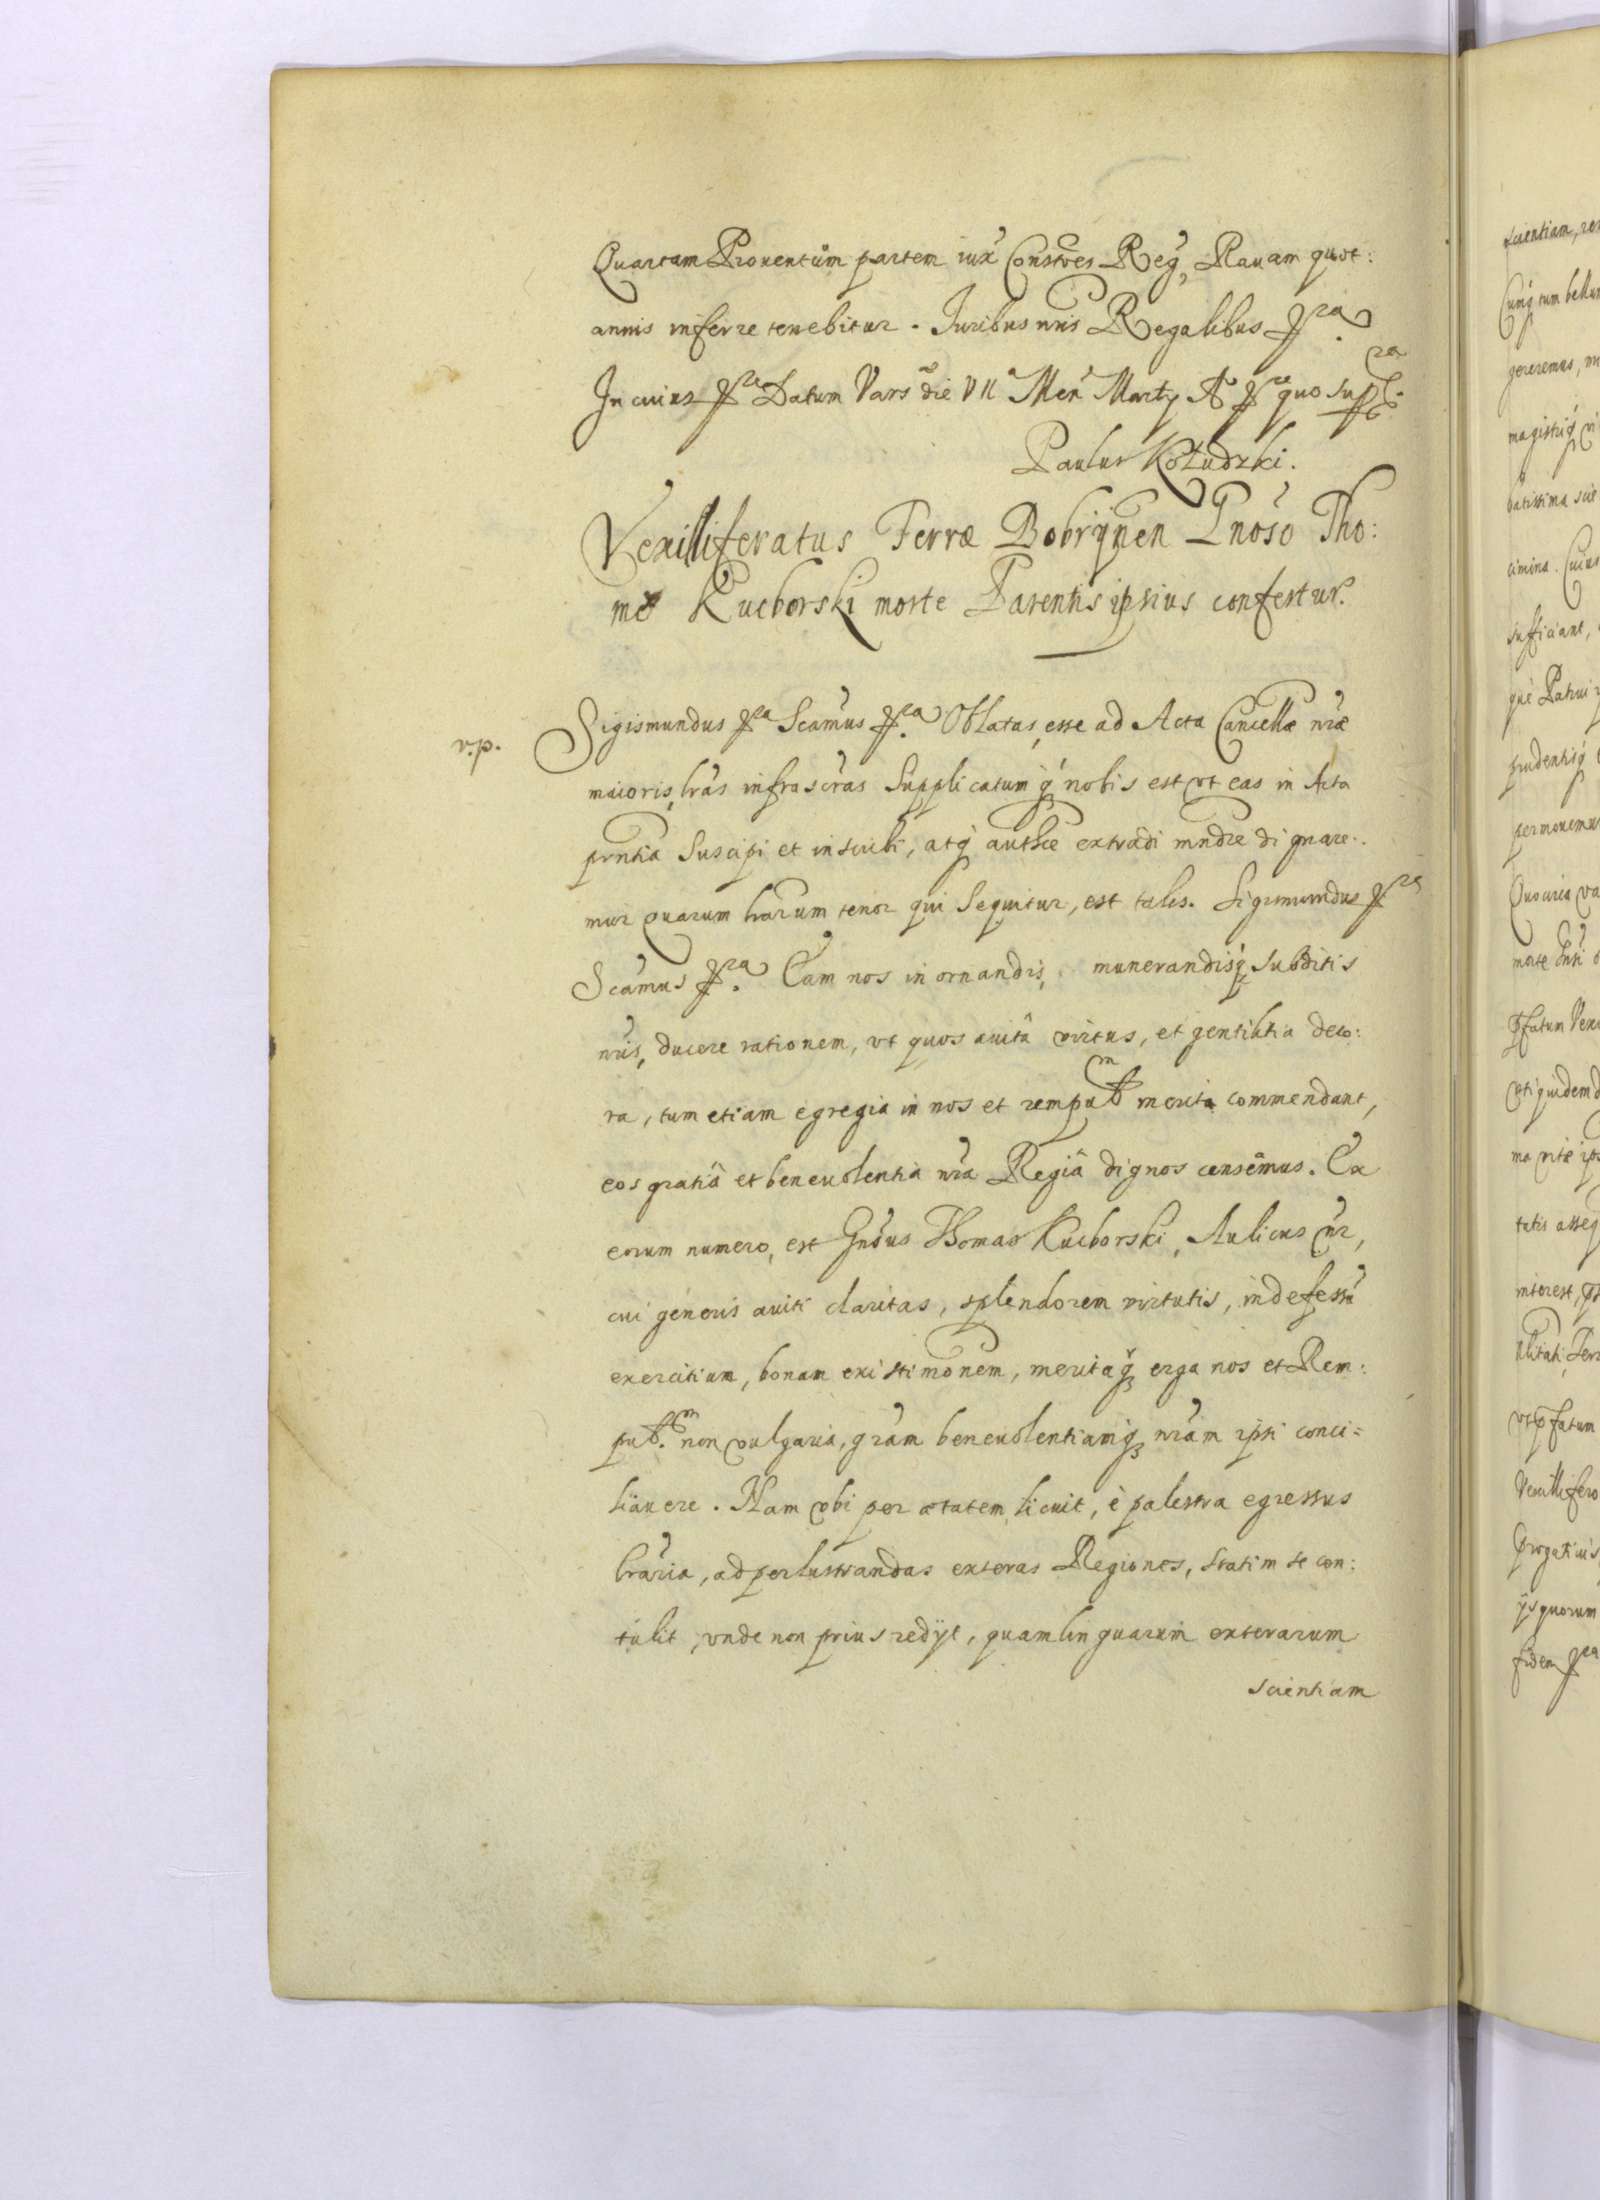 Quartam Prouentuum partem iux Constoes Reg, Rauam quot:
annis inferre tenebitur. Juribus nris Regalibus
In cuius Datum Vars die VII Men Martij Ao quo supra
Paulus Kołudzki.
Vexilliferatus Terræ Dobrijnen Gnoso Tho:
mæ Kucborski morte Parentis ipsius confertur.
v.p.
Sigismundus Scamus Oblatas esse ad Acta Cancellæ nræ
maioris, lras infrascras Supplicatumq nobis est vt eas in Acta
prntia Suscipi et inscribi, atq authce extradi mndre dignare:
mur quarum lrarum tenor qui Sequitur, est talis. Sigismundus
Scamus Eam nos in ornandis, munerandisq subditis
nris, ducere rationem, vt quos auita virtus, et gentilitia deco:
ra, tum etiam egregia in nos et rempub merita commendant,
eos gratiâ et beneuolentia nra Regiâ dignos censemus. Ex
eorum numero, est Gnsus Thomas Kucborski, Aulicus nr,
cui generis auiti claritas, splendorem virtutis, indefessu
exercitium, bonam existimonem, meritaq erga nos et Rem:
pub. non vulgaria, gram beneuolentiamq nram ipsi conci=
liauere. Nam vbi per ætatem licuit, è palestra egressus
lraria, ad perlustrandas exteras Regiones, statim se con:
tulit, vnde non prius redijt, quam linguarum exterarum
scientiam
scientiam,
Cumq tum bellum
gereremus,
magistriq
batissima
cimina. Cuius
sufficiant,
que Patrui
prudentisq
permouemur
morte
pfatum
vti quidem
ma vitæ
tatis
interest,
Terr
vt pfatum
Vexillifero
progatiuis
ijs quorum
fidem